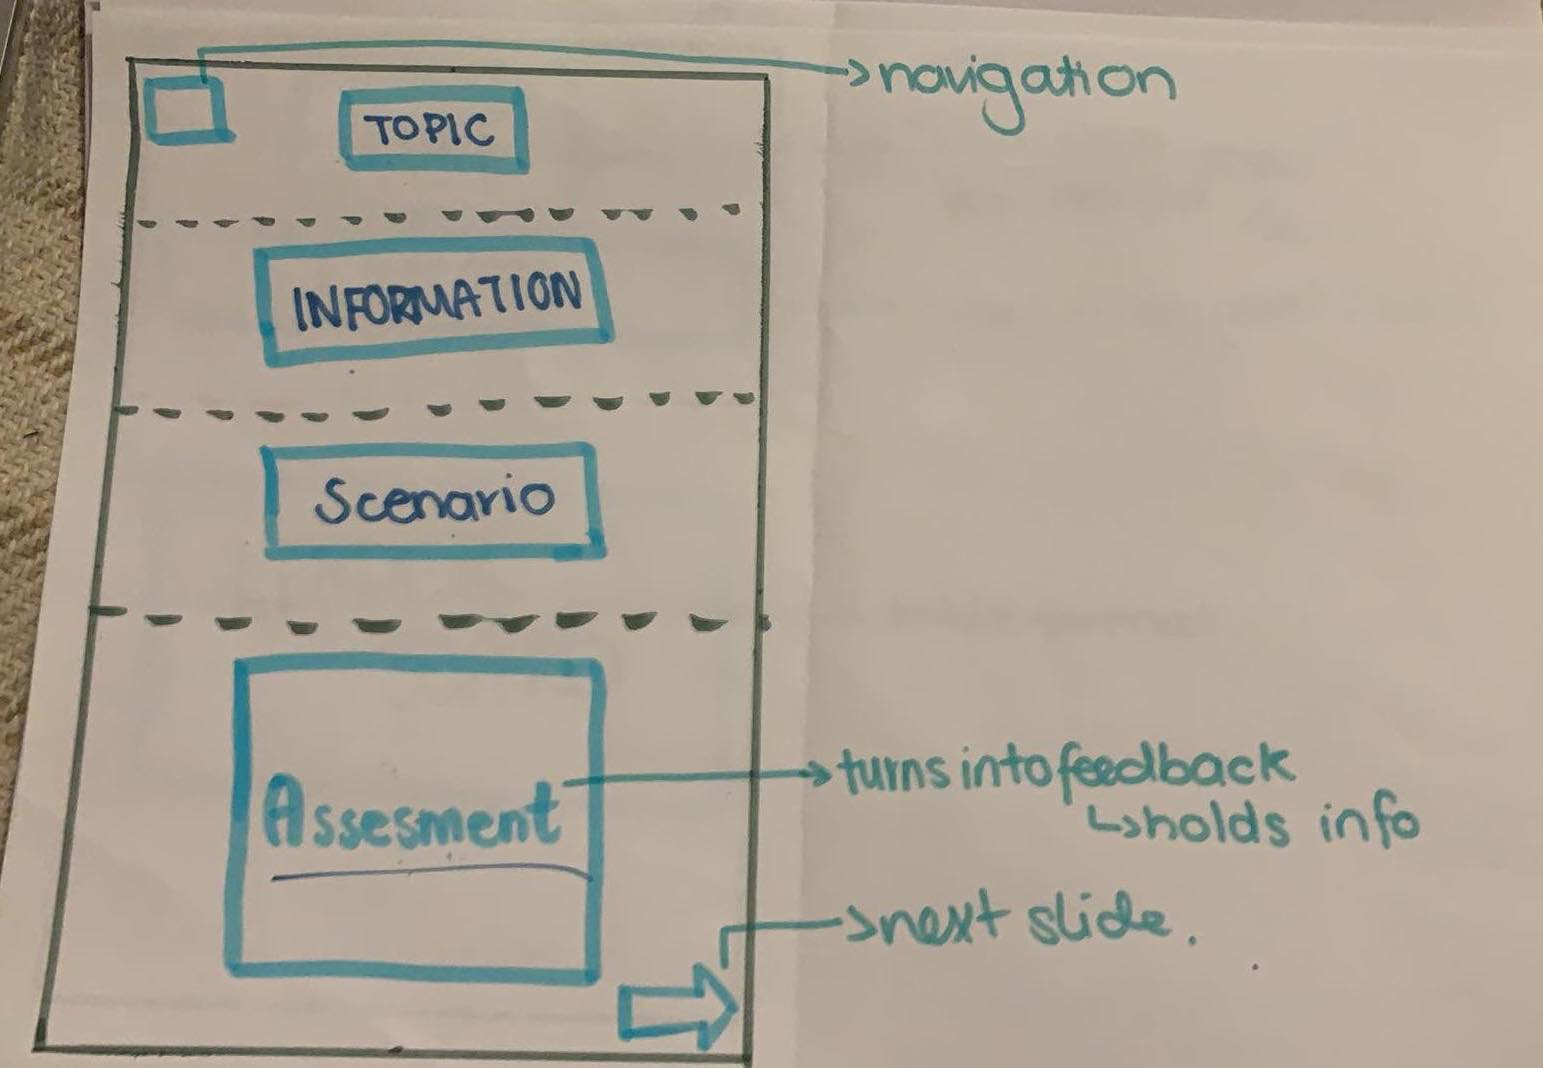 navigation
TOPIC
INFORMATION
Scenario
Assesment
turns into feedback
holds info
next slide.